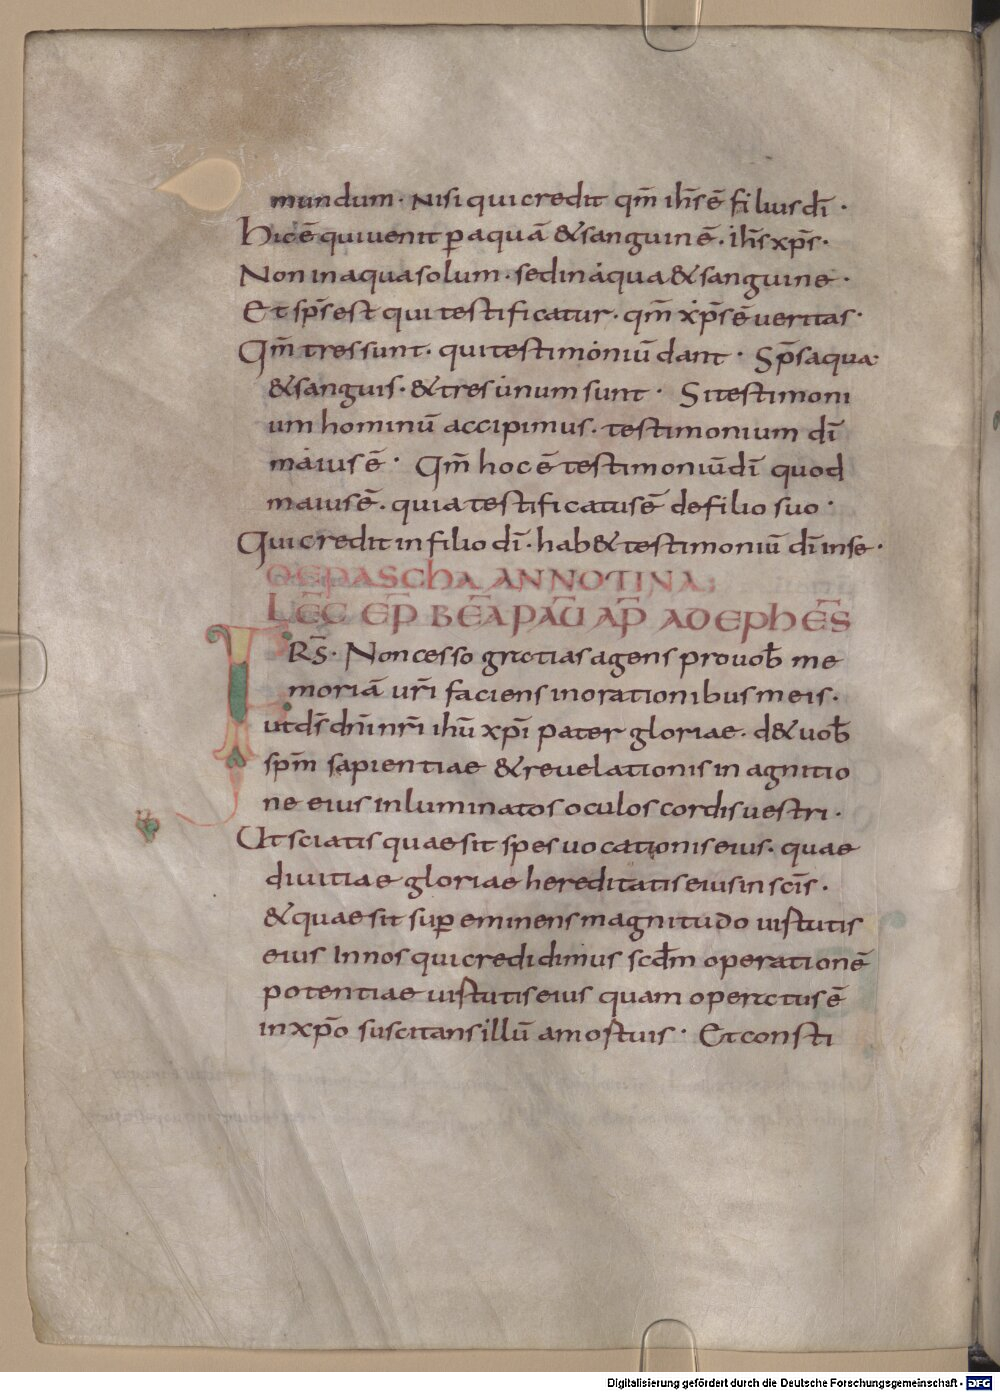 mundum · Nisi qui credit qm̅ ihs̅ ē filius dī ·
Hic ē qui uenit p̲ aquā & sanguinē · ihs̅ xps̅ ·
Non in aqua solum · sed in aqua & sanguine ·
Et sps̅ est qui testificatur · qm̅ xps̅ ē ueritas ·
Qm̅ tres sunt · qui testimoniū dant · Sps̅ aqua ·
& sanguis · & tres unum sunt · Si testimoni
um hominū accipimus · testimonium dī
maius ē · Qm̅ hoc ē testimoniū dī quod
maius ē · quia testificatus ē de filio suo ·
Qui credit in filio dī · hab& testimoniū dī in se ·
DE PASCHA ANNOTINA;
LEC̅ EP̅ BEA̅ PAU̅ AP̅ AD EPHES̅
FRS̅ · Non cesso gratias agens pro uob̅ me
moriā uri̅ faciens in orationibus meis ·
ut ds̅ dni̅ nri̅ ihū xpi̅ pater gloriae · d& uob̅
spm̅ sapientiae & reuelationis in agnitio
ne eius inluminatos oculos cordis uestri ·
Ut sciatis quae sit spes uocationis eius · quae
diuitiae gloriae hereditatis eius in scīs ·
& quae sit sup̲ eminens magnitudo uirtutis
eius In nos qui credidimus scd̅m operationē
potentiae uirtutis eius quam operatus ē
in xpo̅ suscitans illū a mortuis · Et consti
Digitalisierung gefördert durch die Deutsche Forschungsgemeinschaft - DFG